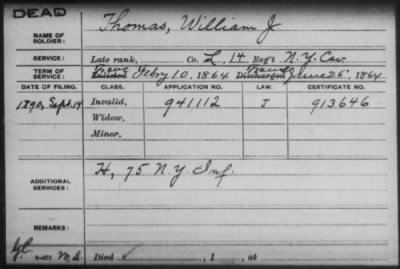 DEAD
NAME OF SOLDIER: Thomas, William J
SERVICE: Late rank, Co. L, 14 Reg't N.Y. Cav
TERM OF SERVICE: Enlisted Febry 10, 1864 Discharged June 25, 1864
DATE OF FILING. CLASS. APPLICATION NO. LAW. CERTIFICATE NO.
1890, Sept. 14 Invalid, 941112 J 913646
Widow,
Minor,
ADDITIONAL SERVICES: H, 75 N.Y. Inf.
REMARKS:
Died , 1 , at